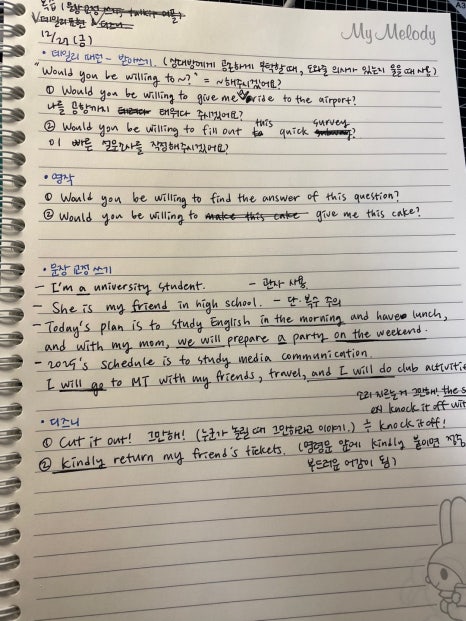 복습 (문장 교정 쓰기, talkir 어플)
✓데일리표현 & 디즈니
My Melody
12/20 (금)
• 데일리 패턴 - 받아쓰기. (상대방에게 공손하게 부탁할 때, 도와줄 의사가 있는지 물을 때 사용)
"Would you be willing to ~?" = ~해주시겠어요?
① Would you be willing to give me a ride to the airport?
나를 공항까지 태워다 주시겠어요?
② Would you be willing to fill out this quick survey?
이 빠른 설문조사를 작성해주시겠어요?
• 영작
① Would you be willing to find the answer of this question?
② Would you be willing to make this cake give me this cake?
• 문장 교정 쓰기
- I'm a university student. - 관사 사용.
- She is my friend in high school. - 단·복수 주의
- Today's plan is to study English in the morning and have lunch,
and with my mom, we will prepare a party on the weekend.
- 2025's schedule is to study media communication.
I will go to MT with my friends, travel, and I will do club activitie
소리 지르는거 그만해! the s
en knock it off wit
• 디즈니
① Cut it out! 그만해! (누군가 놀릴 때 그만하라고 이야기.) ≒ knock it off!
② kindly return my friend's tickets. (명령문 앞에 kindly 붙이면 좀
부드러운 어감이 됨)